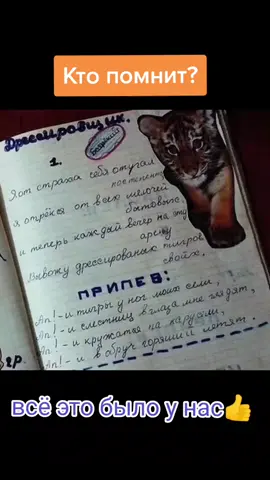 Кто помнит?
Дрессировщик.
1.
Я от страха себя отучал
постепенно
Я отрёкся от всех мелочей
бытовых,
и теперь каждый вечер на эту
арену
Вывожу дрессированых тигров
своих,
ПРИПЕВ:
Ап! - и тигры у ног моих сели,
Ап! - и с лестниц в глаза мне глядят,
Ап! - и кружатся на карусели,
Ап! - и в обруч горящий летят.
всё это было у нас👍